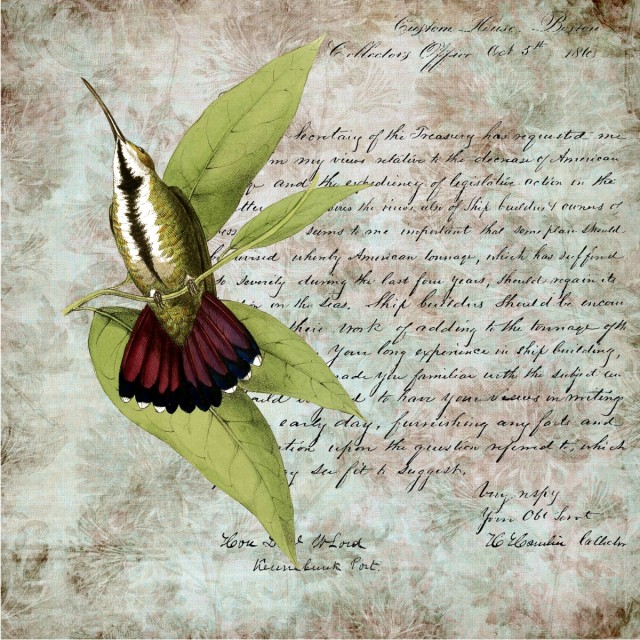 Custom-House, Boston
Collectors Office Oct 5th 186
Secretary of the Treasury has requested me
my views relative to the decrease of American
and the expediency of legislative action in the
the views also of Ship builders & owners of
seems to me important that some plan should
devised whereby American tonnage, which has suffered
so severely during the last four years, should regain its
on the Seas. Ship builders should be encou
their work of adding to the tonnage of th
Your long experience in ship building,
made you familiar with the subject an
to have your views in writing
early day, furnishing any facts and
upon the question referred to, which
may see fit to suggest.
Very rspy
Your Obt Servt
Hon W Lord H Hamlin Collector
Kennebunk Port